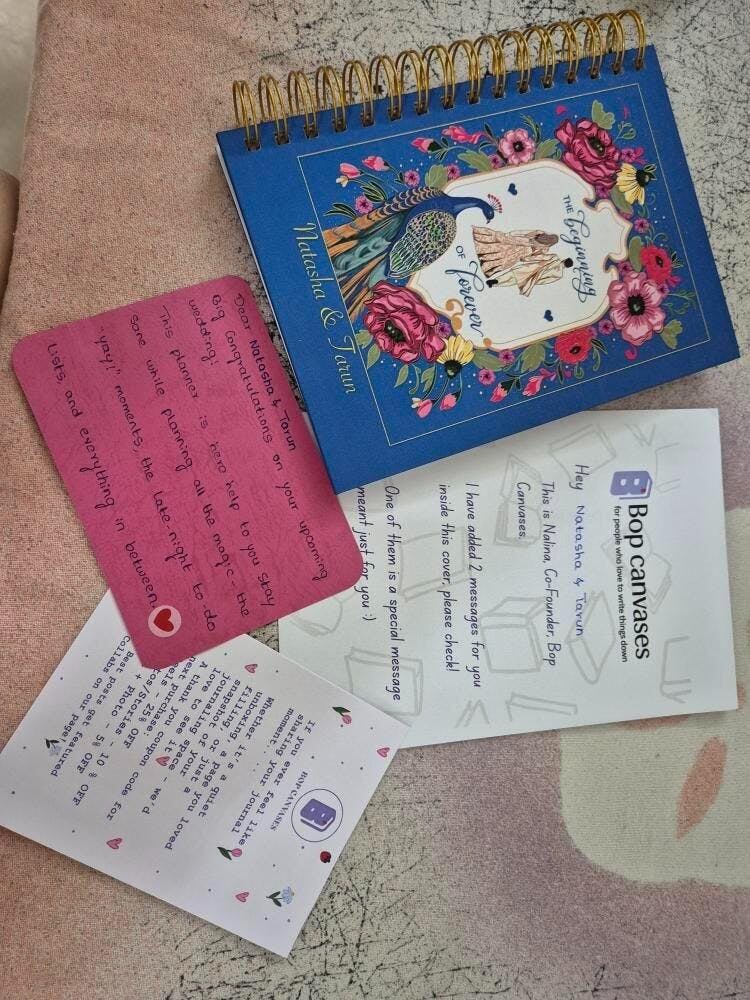 THE
beginning
OF
forever
Natasha & Tarun
Dear Natasha & Tarun
Big Congratulations on your upcoming
wedding!
This planner is here help to you stay
sane while planning all the magic - the
"yay!" moments, the late-night to do
lists, and everything in between!
Bop canvases
for people who love to write things down
Hey Natasha & Tarun
This is Nalina, Co-Founder, Bop
Canvases.
I have added 2 messages for you
inside this cover, please check!
One of them is a special message
meant just for you :)
BOP CANVASES
If you ever feel like
sharing your journal
moment...
Whether it's a quiet
unboxing, a page you loved
filling or just a
snapshot of your
journaling space - we'd
love to see it
A thank you coupon code for
next purchase
/Stories - 25% OFF
+ Photo - 5% OFF
- 10% OFF
Best posts get featured
Collabs on our page!